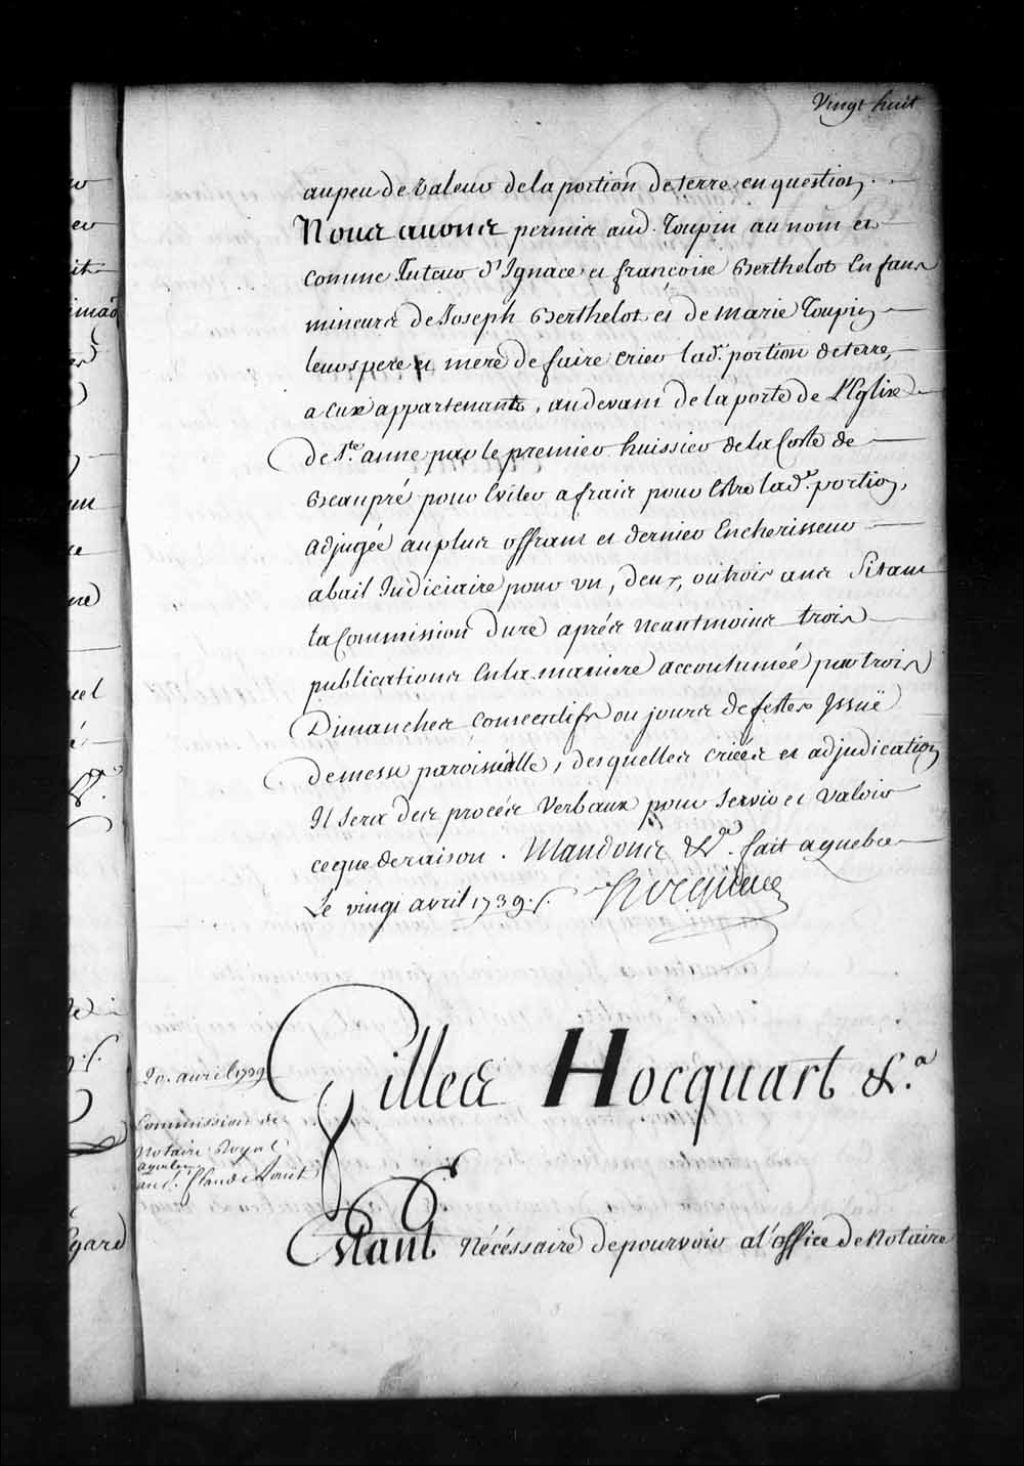 Vingt huit
au peu de valeur de la portion de terre en question.
Nous avons permis aud. Toupin au nom et
comme Tuteur d'Ignace et françoise Berthelot Enfans
mineurs de Joseph Berthelot et de Marie Toupin
leurs pere et mere de faire crier lad. portion de terre,
a Eux appartenante, au devant de la porte de L'Eglise
de Ste. anne par le premier huissier de la Coste de
Beaupré pour Eviter a frais pour Estre lad.e portion,
adjugée au plus offrant et dernier Encherisseur
a bail Judiciaire pour un, deux, ou trois ans Si tant
la Commission dure aprés neantmoins trois
publications En la maniere accoutumée par trois
Dimanches Consecutifs ou jours de festes Issuë
de messe paroissialle, desquelles criées et adjudication
Il sera des procés Verbaux pour servir et valoir
ce que de raison. Mandons &a. fait a quebec
Le vingt avril 1739 ./. Hocquart
Gilles Hocquart &.a
20. avril 1739
Commission de
Notaire Royal
a quebec
aud.
Estant Nécéssaire de pourvoir a l'office de Notaire